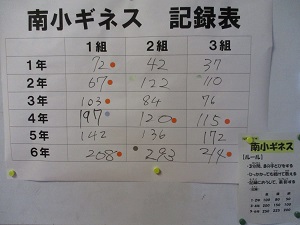 南小ギネス 記録表
1組 2組 3組
1年 72 42 37
2年 67 122 110
3年 103 84 76
4年 197 120 115
5年 142 136 172
6年 208 293 214
南小ギネス
【ルール】